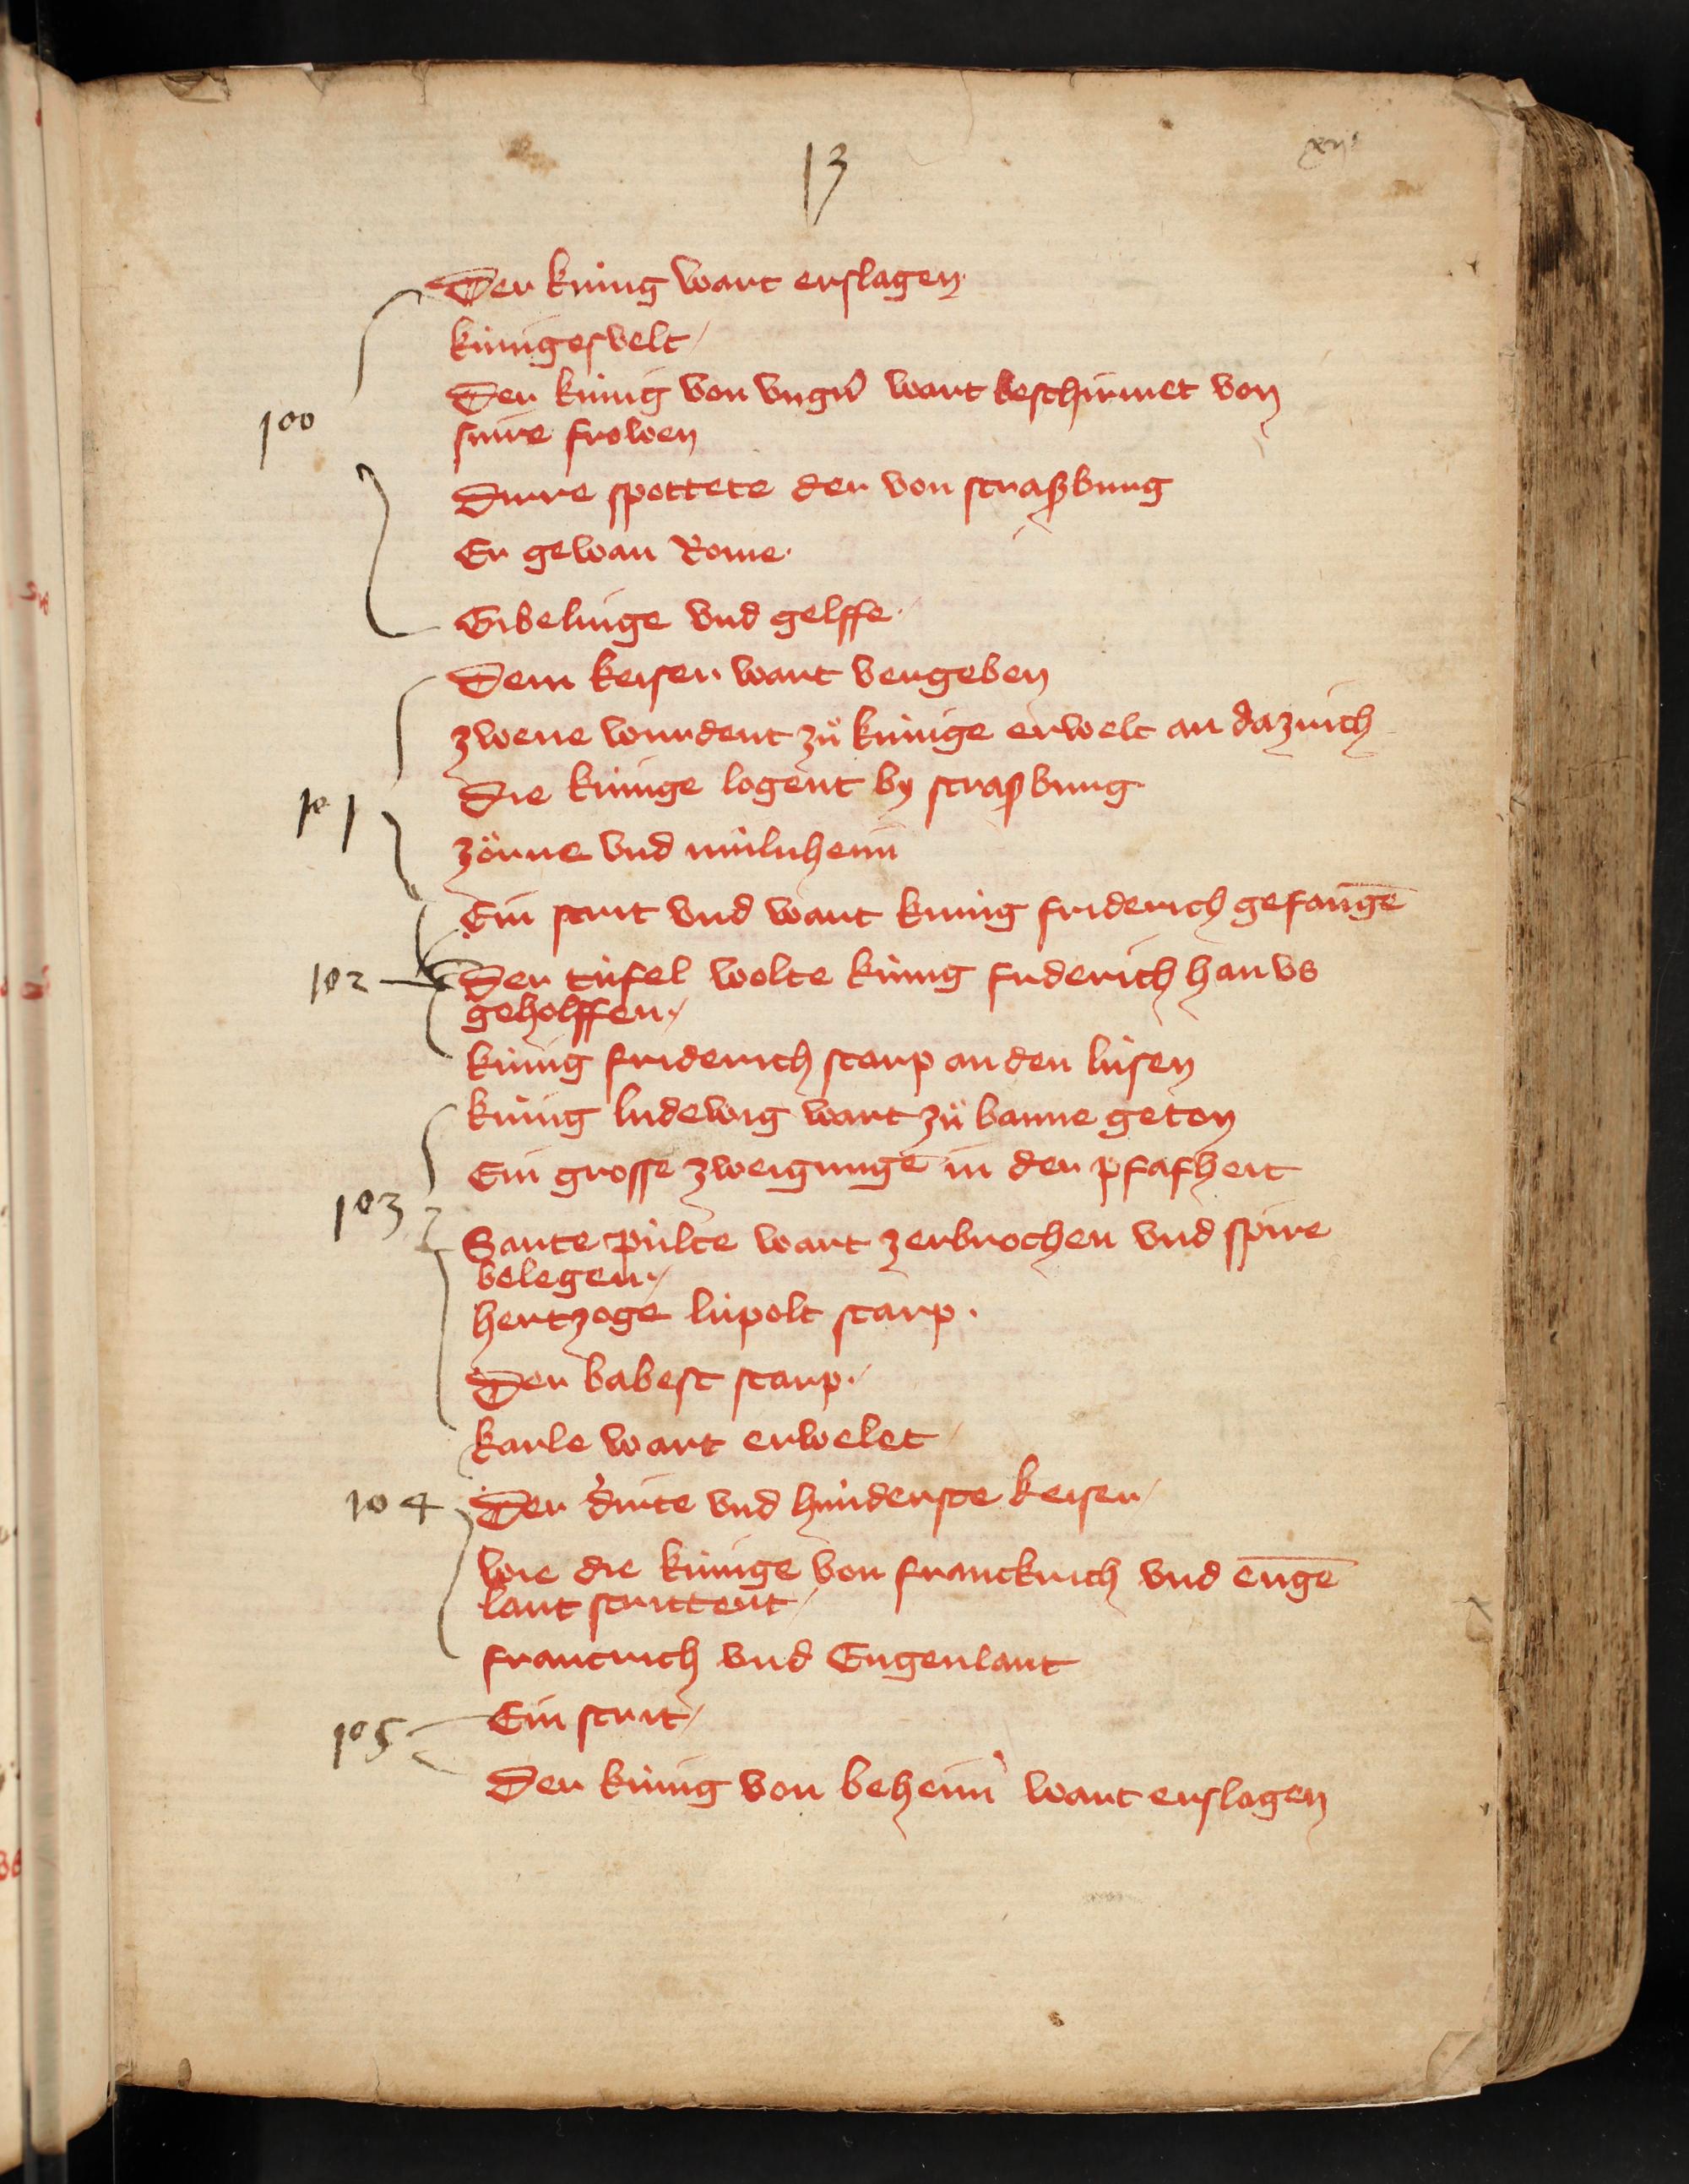 13
xij
Der kúnig wart erslagen.
kúnigesvelt /
Der kúnig von vngern wart beschirmet von
100
sinre frowen
Dirre spottete der von straßburg
Er gewan Rome.
Gibelinge vnd gelffe.
Dem keiser wart vergeben
zwene wurdent zů kúnige erwelt an dazrich
101
Die kúnige logent by straßburg.
zörne vnd múlnheim
Ein strit vnd wart kúnig friderich gefangē
102
Der túfel wolte kúnig friderich han vs
geholffen. /
kúnig friderich starp an den lúsen
kúnig ludewig wart zů banne geton
Ein grosse zweigunge in der pfafheit
103
Sante púlte wart zerbrochen vnd spire
belegen. /
hertzoge lúpolt starp.
Der babest starp. /
karle wart erwelet /
104
Der dirte vnd hunderste keiser /
wie die kúnige von franckrich vnd engē
lant strittent /
francrich vnd Engenlant
Ein strit /
105
Der kúnig von behem wart erslagen